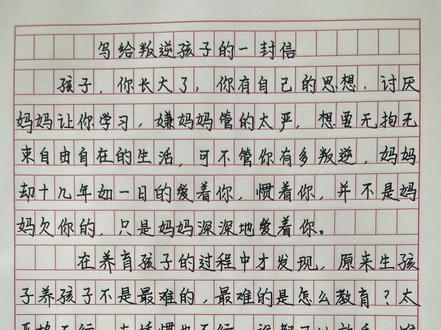 写给叛逆孩子的一封信
孩子，你长大了，你有自己的思想，讨厌
妈妈让你学习，嫌妈妈管的太严，想要无拘无
束自由自在的生活，可不管你有多叛逆，妈妈
却十几年如一日的爱着你，惯着你，并不是妈
妈欠你的，只是妈妈深深地爱着你。
在养育孩子的过程中才发现，原来生孩
子养孩子不是最难的，最难的是怎么教育？太